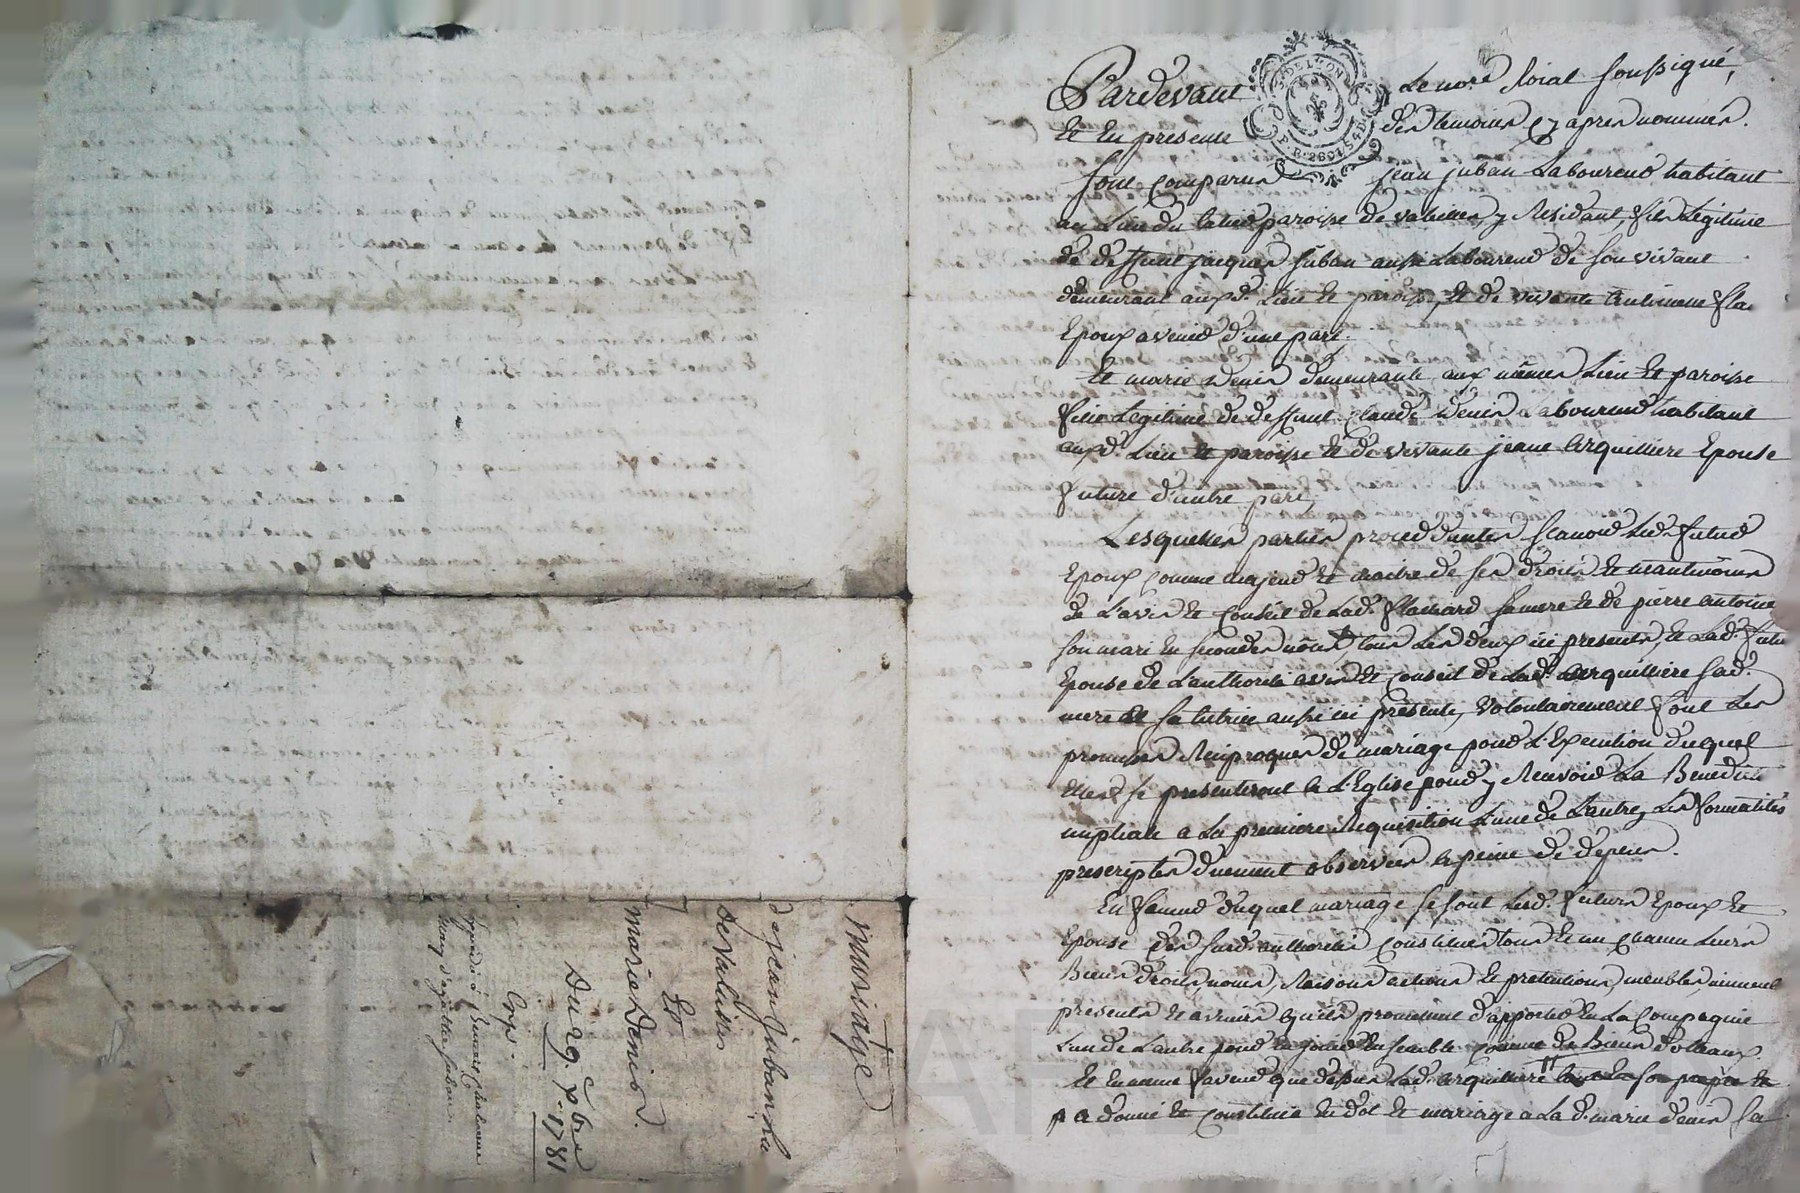 Pardevant Le no.re Roial soussigné,
Et En presence des temoins cy apres nommés.
Sont Comparus jean juban Laboureur habitant
au Lieu du paroisse de valsilles y Residant, fils Legitime
de deffunt jacques juban aussi Laboureur de Son vivant
demeurant auxd. Lieu et paroisse, et de vivante
Epoux avenir d'une part.
Et marie Denis demeurante aux mêmes Lieu Et paroisse
fille Legitime de deffunt Claude Denis Laboureur habitant
auxd. Lieu et paroisse et de vivante jeane Arquilliere Epouse
future d'autre part,
Lesquelles parties procedantes scavoir Led. futur
Epoux Comme majeur et maitre de ses droits et neantmoins
de L'avis et Conseil de Lad. sa mere et de pierre antoine
son mari en secondes nôces tous Les deux ici presents, et Lad. future
Epouse de L'authorité avis et Conseil de Lad. Arquilliere sad.
mere et sa tutrice aussi ici présente, volontairement font Les
promesses Reciproques de mariage pour L'Execution duquel
Elles se presenteront à L'Eglise pour y Recevoir La Benediction
nuptiale a La premiere Requisition L'une de L'autre, Les formalités
prescriptes duement observées à peine de depens.
En faveur duquel mariage se sont Lesd. futurs Epoux Et
Epouse des susd. authorités Constitués tous et un chacun Leurs
Biens droits, noms, Raisons actions Et pretentions, meubles, immeubles
presents et avenir qu'ils promettent d'apporter En La Compagnie
L'un de L'autre pour En jouir Ensemble Comme de Biens dotaux.
Et En même faveur que dessus Lad. Arquilliere
a donné Et Constitué En dot Et mariage a La d. marie denis sa
G. DE LYON
mariage
de jean juban
de valsilles
Et
marie Denis.
Du 29. 7.bre 1781
Exp.